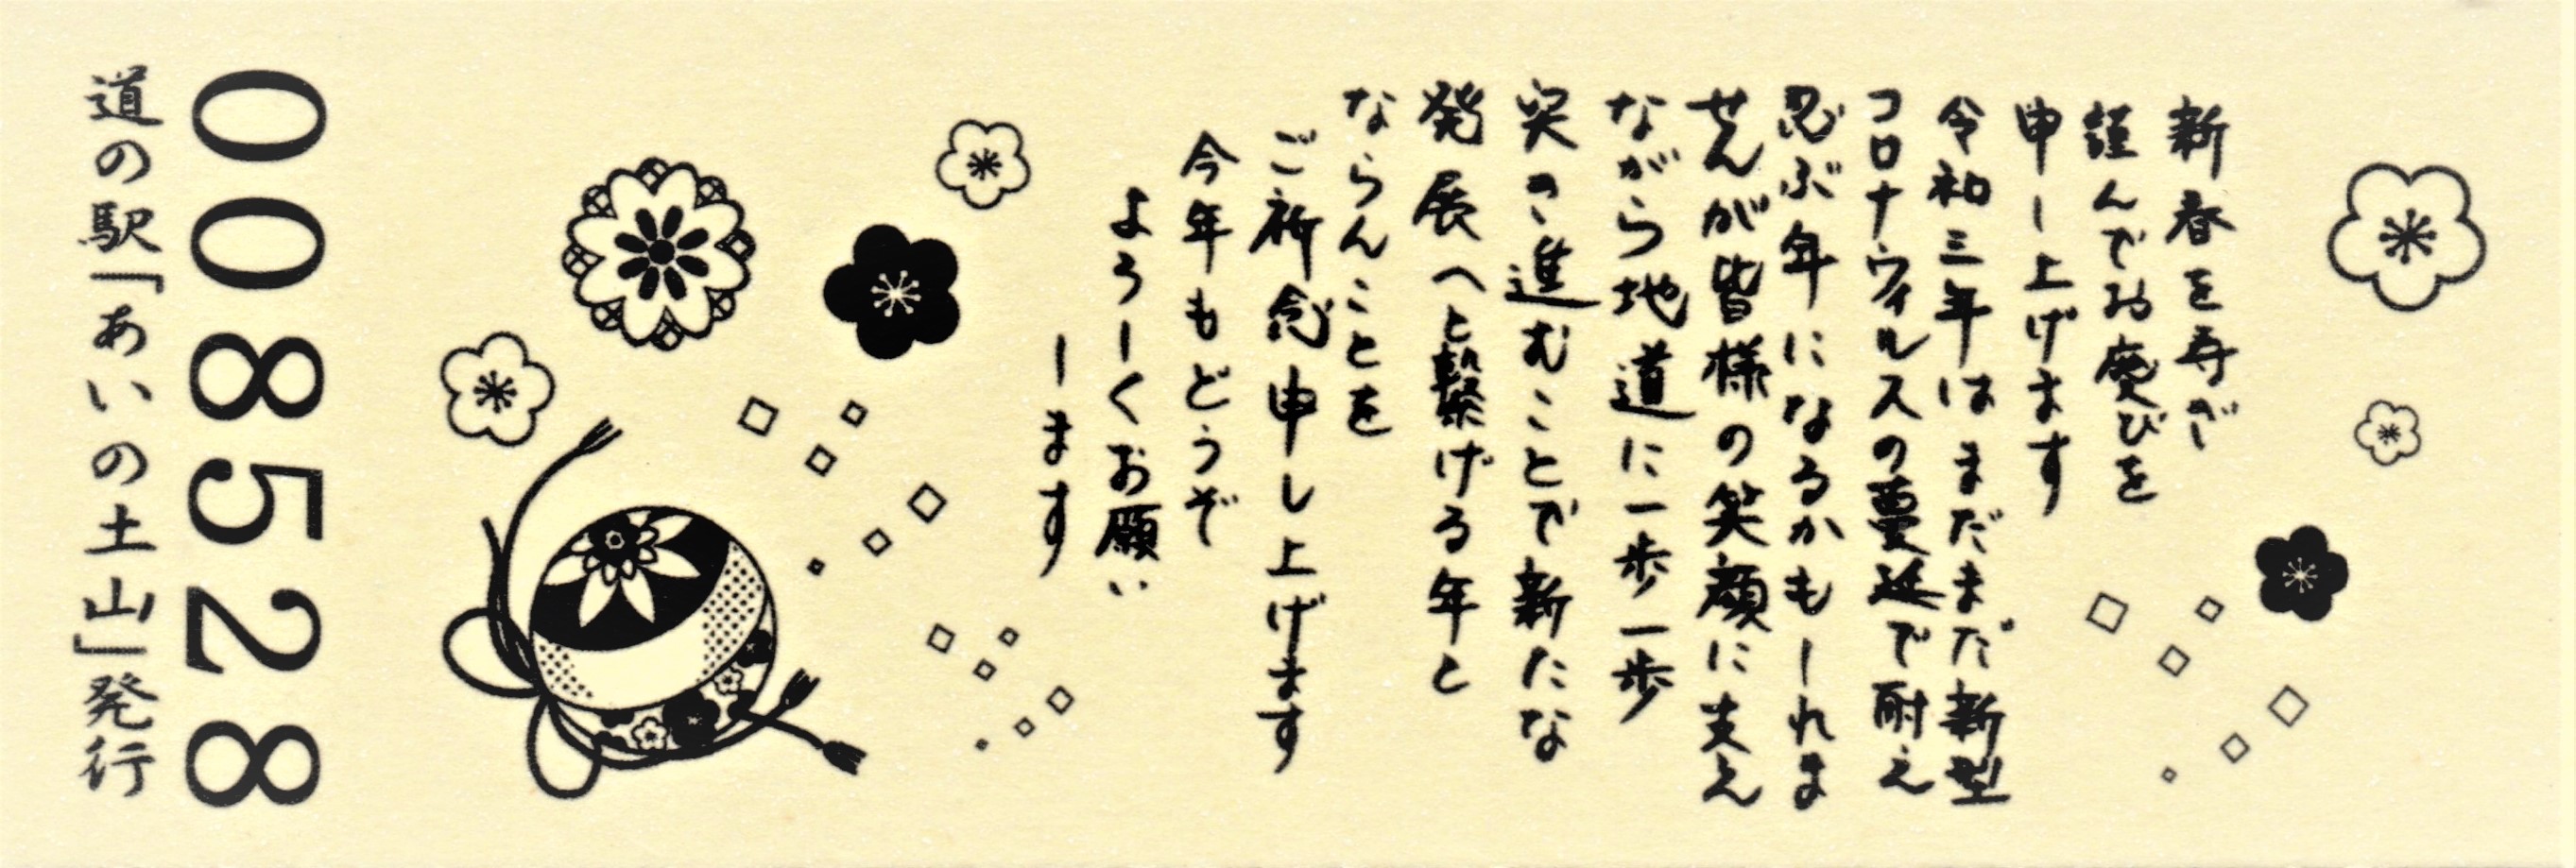 新春を寿ぎ
謹んでお慶びを
申し上げます
令和三年はまだまだ新型
コロナウィルスの蔓延で耐え
忍ぶ年になるかもしれま
せんが皆様の笑顔に支え
ながら地道に一歩一歩
突き進むことで新たな
発展へと繋げる年と
ならんことを
ご祈念申し上げます
今年もどうぞ
よろしくお願い
します
008528
道の駅「あいの土山」発行